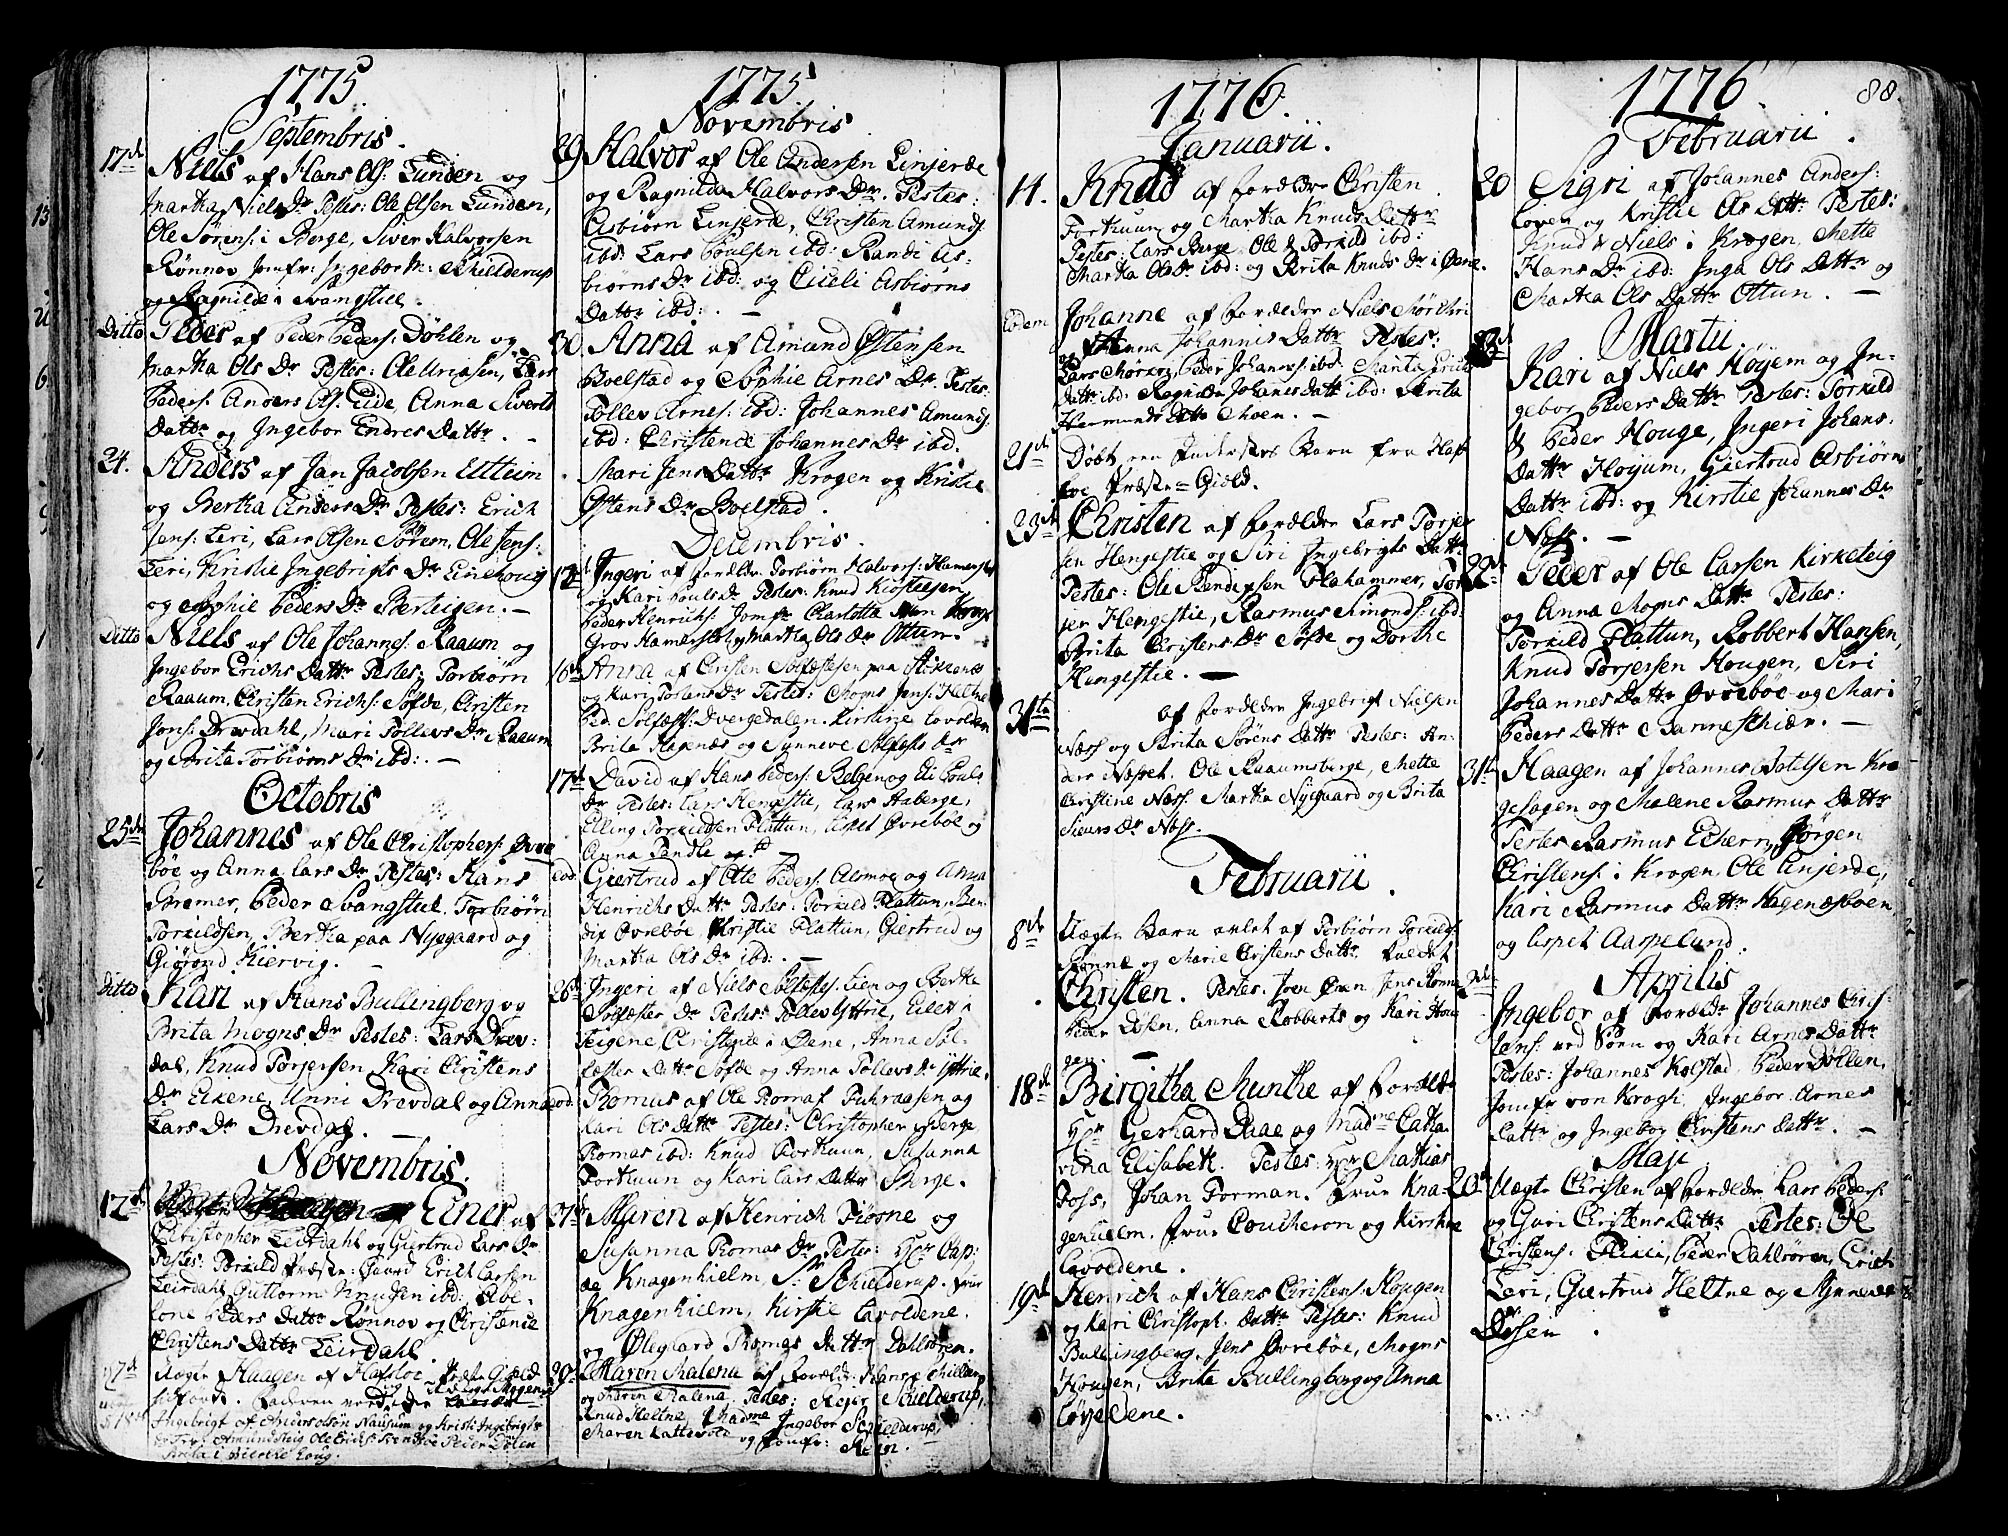 1775
Septembris.
17de Niels af Hans Ols: Lunden og
Martha Niels Dr Testes: Ole Olsen Lunden,
Ole Sørens: i Berge, Siver Halvorsen
Rønnov Jomfr: Ingebor M: Schielderup
og Ragnilde i Svangstue.
Ditto Peder af Peder Peders: Døhlen og
Martha Ols Dr Testes: Ole Uriasen, Lars
Peders: Anders Ols: Eide, Anna Siverts
Dattr og Ingebor Endres Dattr.
24. Anders af Jan Jacobsen Eltteim
og Bertha Anders Dr Testes: Erich
Jens: Leri, Lars Olsen Sørem, Ole Jens:
Leri, Kristie Ingebrigts Dr Linehoug
og Sophie Peders Dr Berteigen.
Ditto Niels af Ole Johannes: Raaum og
Ingebor Erichs Dattr Testes: Torbiørn
Raaum, Christen Erichs: Sofde, Christen
Jons: Drevdahl, Mari Tollevs Dr Raaum
og Brita Torbiørns Dr ibd:
Octobris
25de Johannes af Ole Christophers: Ovre
bøe og Anna Lars Dr Testes: Hans
Bremer, Peder Svangstue, Torbiørn
Torkildsen, Bertha paa Nyegaard og
Giørond Kiervig.
Ditto Kari af Hans Bullingberg og
Brita Mogns Dr Testes: Lars Drev:
dal, Knud Torjersen, Kari Christens
Dr Eikene, Unni Drevdal og Anna
Lars Dr Drevdal.
Novembris.
12te Einer af
Christopher Leirdahl og Giertrud Lars Dr
Testes: Torkild Præste: Gaard Erich Larsen
Leirdahl, Guttorm Knudsen ibd: Abe-
lone Peders Dattr Rønnov og Christence
Christens Dattr Leirdahl
27de Haagen af Hafsloe Præste Gield
Ingebrigt af Anders Olsen Nausum og Kristi Ingebrigts
1775.
Novembris
29 Halvor af Ole Andersen Linjerde
og Ragnilda Halvors Dr. Testes:
Asbiørn Linjerde, Christen Amunds:
ibd: Lars Poulsen ibd: Randi As-
biørns Dr ibd: og Cicili Asbiørns
Dattr ibd:
30 Anna af Amund Østensen
Boelstad og Sophie Arnes Dr. Testes:
Tollev Arnes: ibd: Johannes Amunds:
ibd: Christence Johannes Dr ibd.
Mari Jens Dattr Krogen og Kristie
Østens Dr Boelstad.
Decembris.
12te Ingeri af Forældre Torbiørn Halvors: Hamersbe
og Kari Pouls Dr. Testes: Knud Kiøstelsen
Peder Henrichs: Jomfr Charlotta Krog:
Grov Hamersbe og Martha Ols Dr Ottun.
16de Anna af Christen Solfæstesen paa Stokkenæs
og Kari Torsens Dr Testes: Mogns Jens: Heltne
Ped. Solfæst: Dvergedalen. Kirstine Lovolden
Brita Hagenæs og Synneve Solfæsts Dr
17de David af Hans Peders: Bolgen og Eli Pouls
Dr Testes: Lars Hengestie, Lars Haberge,
Elling Torkildsen Flattun, Lispet Ovrebøe og
Anna Sandle
eod. Giertrud af Ole Peders: Aasmoe og Anna
Henrichs Dattr Testes: Torkild Flattun, Ben-
dix Ovrebøe, Christie Flattun, Giertrud og
Martha Ols Dr ibd:
26de Ingeri af Niels Solfest: Lien og Berthe
Solfæster Dr Testes: Tollev Yttrie, Eiler i
Teigene, Christence i Øene, Anna Sol-
fæster Dattr Sofde og Anna Tollevs Dr Yttrie.
eod. Thomas af Ole Thomas: Fuhraasen og
Kari Ols Dattr Testes: Christopher Berge
Thomas ibd: Knud Fortuun, Susanna
Fortuun og Kari Lars Dattr Berge.
27de Maren af Henrich Fiøsne og
Susanna Thomas Dr Testes: Hr Cap:
Knagenhielm, Sr: Schielderup, Frue
Knagenhielm, Kirstie Lavoldene.
og Olegaard Thomas Dattr Dahlsøren.
29de Maren Malena af Forældre Hans Philip
og Karen Malena. Testes: Rejer Schielderup,
Knud Heltne, Madme Ingebor Schielderup,
Maren Kattevold og Jomfr: Rejn.
1776.
Januarii.
14. Knud af Forældre Christen
Fortuun og Martha Knuds Dattr
Testes: Lars Berge, Ole & Torkild ibd:
Martha Ols Dr ibd: og Brita Knuds Dr i Øene.
Eodem Johanne af Forældre Niels Mørchri
og Anna Johannis Dattr Testes:
Lars Mørkri, Peder Johannes: ibd. Marita Erichs
Dattr ibd: Ragnilde Johanes Datt ibd: Brita
Harmunds Dattr Moen.
21de Døbt een Finderskes Barn fra Hafs
loe Præste-Gield.
23de Christen af Forældre Lars Torjer
sen Hengestie og Siri Ingebrigts Dattr
Testes: Ole Bendixsen Flahammer, Tor
jer Hengestie, Rasmus Simonds: ibd:
Brita Christens Dr Sofde og Dorthe
Hengestie.
31te af Forældre Ingebrigt Nielsen
Næss og Brita Sørens Dattr Testes: An-
ders Næsset, Ole Raaumsberge, Mette
Christine Næss. Martha Nyegaard og Brita
Siurs Dr Næss.
Februarii.
8de Uægte Barn avlet af Torbiørn Torkilds:
Rønne og Marie Christens Dattr kaldet
Christen. Testes: Joen Øren, Jens Ronne
Peder Døsen, Anna Robberts og Kari Hou
gen.
18de Birgitha Munthe af Forældr
Hr Gerhard Daae og Madme Catha-
rina Elisabeth. Testes: Hr Mathias
Foss, Johan Forman, Frue Kna-
genhielm, Frue Coucheron og Kirstie
Lavoldene.
19de Henrich af Hans Christens: Hougen
og Kari Christoph: Dattr Testes: Knud
Bullingberg, Jens Ovrebøe, Mogns
Hougen, Brita Bullingberg og Anna
Løyedene.
1776.
88.
Februarii.
20 Sigri af Johannes Anders:
Loven og Kristie Ols Dattr Testes:
Knud & Niels i Krogen, Mette
Hans Dr ibd: Inga Ols Dattr og
Martha Ols Dattr Ottun.
Martii.
Kari af Niels Høyem og In-
gebor Peders Dattr Testes: Torkild
& Peder Houge, Ingeri Johans:
Dattr Høyum, Giertrud Asbiørns
Dattr ibd: og Kirstie Johannes Dr
Næss.
22de Peder af Ole Larsen Kirketeig
og Anna Mogns Dattr Testes:
Torkild Flattun, Robbert Hansen,
Knud Torjersen Hougen, Siri
Johannes Dattr Ovrebøe og Mari
Peders Dattr Banneschiær.
31te Haagen af Johannes Botelsen Kro
gehagen og Malene Rasmus Dattr
Testes Rasmus Echern, Jørgen
Christens: i Krogen, Ole Linjerde,
Kari Rasmus Dattr Hagenæsbøen,
og Lispet Aaspelund.
Aprilis
Ingebor af Forældr Johannes Chris-
tens: ved Søen og Kari Arnes Dattr
Testes: Johannes Kolstad, Peder Døllen,
Jomfr von Krogh, Ingebor Arnes
Dattr og Ingebor Christens Dattr.
Maji
20de Uægte Christen af Forældr Lars Peders:
og Guri Christens Dattr Testes: Ole
Christens: Peder Dahlsøren, Erich
Leri, Giertrud Heltne og Synneve
Døsen.